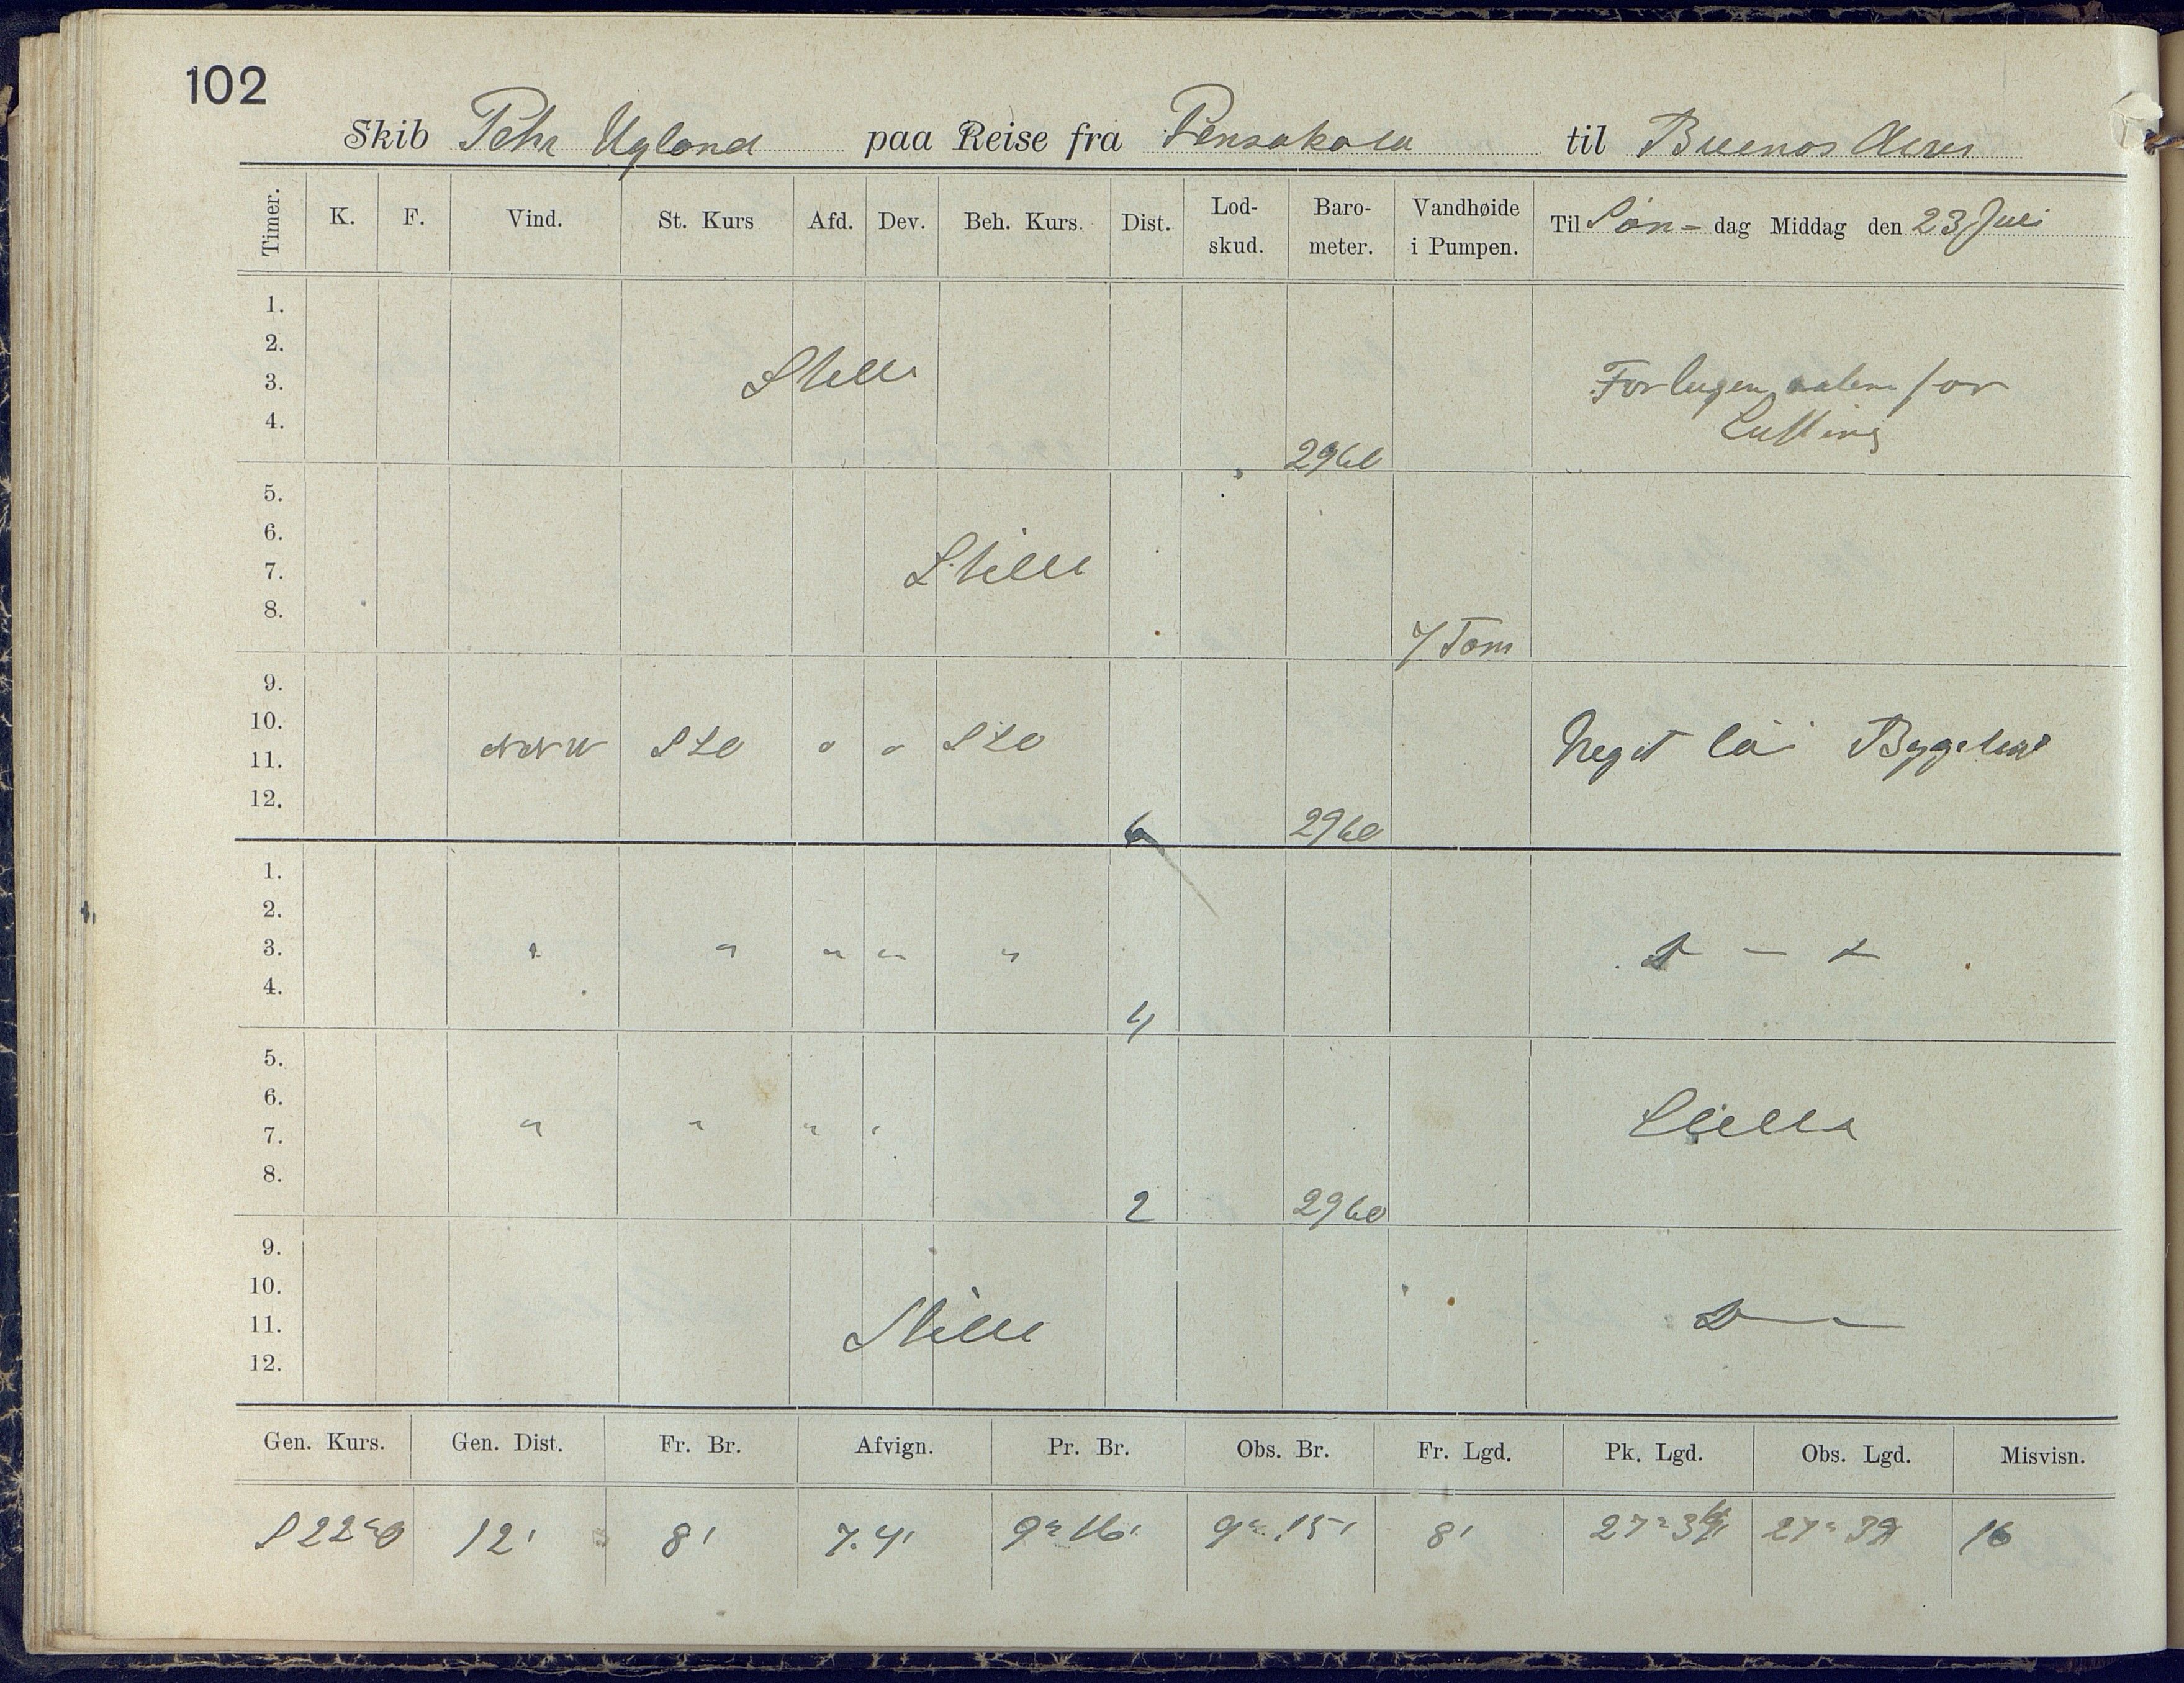 102
Skib Pehr Ugland paa Reise fra Pensakola til Buenos Aires
Timer. K. F. Vind. St. Kurs Afd. Dev. Beh. Kurs. Dist. Lod-skud. Baro-meter. Vandhøide i Pumpen. Til Søn- dag Middag den 23 Juli
1.
2.
3. Stille Forlugen aaben for
4. Lufting
2960
5.
6.
7. Stille
8.
7 Tom
9.
10.
11. NNW SSO " " SSO Meget løi Bygeluft
12.
6 2960
1.
2.
3. " " " " " D - o
4.
4
5.
6.
7. " " " " Stille
8.
2 2960
9.
10.
11. Stille D
12.
Gen. Kurs. Gen. Dist. Fr. Br. Afvign. Pr. Br. Obs. Br. Fr. Lgd. Pk. Lgd. Obs. Lgd. Misvisn.
S22°O 12' 8' 7.4' 9° 16' 9° 15' 8' 27° 27° 39 16